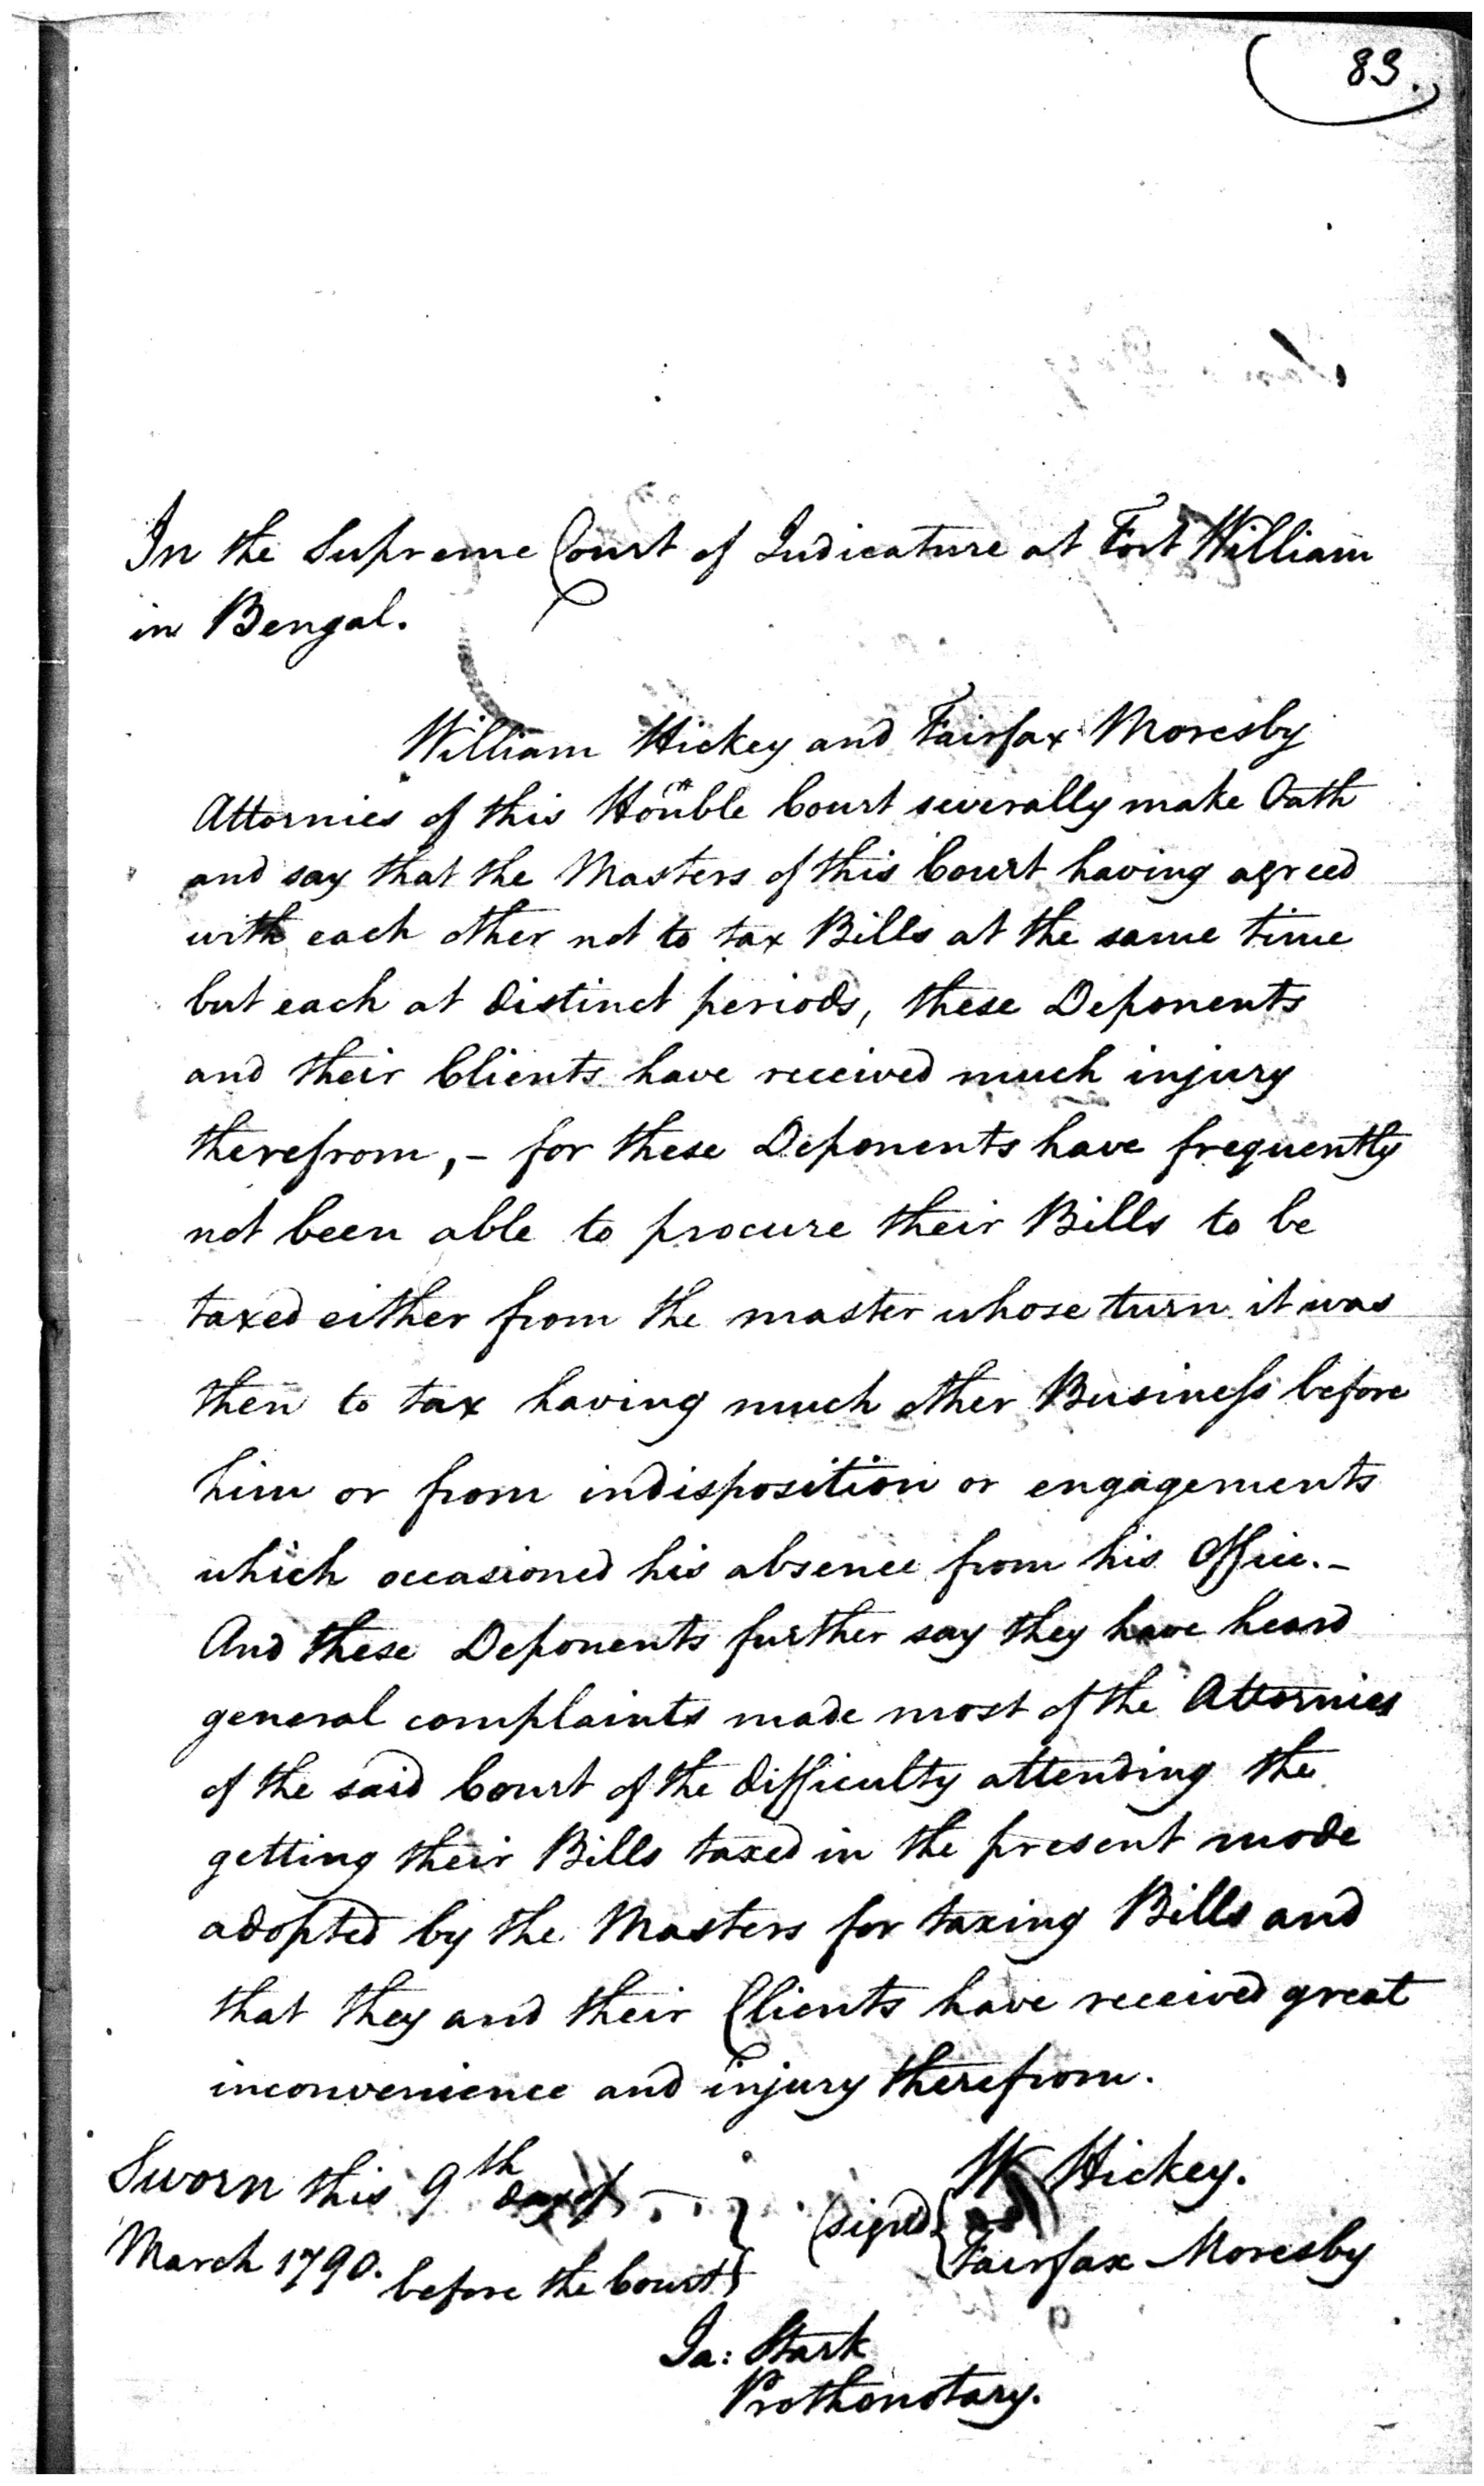 83.
In the Supreme Court of Judicature at Fort William
in Bengal.
William Hickey and Fairfax Moresby
Attornies of this Hon̈ble Court severally make Oath
and say that the Masters of this Court having agreed
with each other not to tax Bills at the same time
but each at distinct periods, these Deponents
and their Clients have received much injury
therefrom, - for these Deponents have frequently
not been able to procure their Bills to be
taxed either from the master whose turn it was
then to tax having much other Businefs before
him or from indisposition or engagements
which occasioned his absence from his Office. -
And these Deponents further say they have heard
general complaints made most of the Attornies
of the said Court of the difficulty attending the
getting their Bills taxed in the present mode
adopted by the Masters for taxing Bills and
that they and their Clients have received great
inconvenience and injury therefrom.
Sworn this 9th day of -
March 1790. before the Court}
(signed { W Hickey.
Fairfax Moresby
Ja: Stark
Prothonotary.